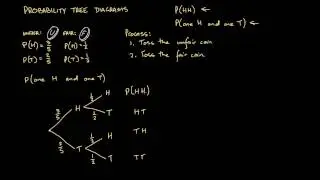 PROBABILITY TREE DIAGRAMS
P(HH) ←
P(one H and one T) ←
UNFAIR: U FAIR: F
P(H) = P(H) = 1/2
P(T) = P(T) = 1/2
PROCESS:
1. Toss the unfair coin
2. Toss the fair coin
P(one H and one T)
P(HH)
H
1/2
H
1/2
T
HT
H
TH
T
T
TT